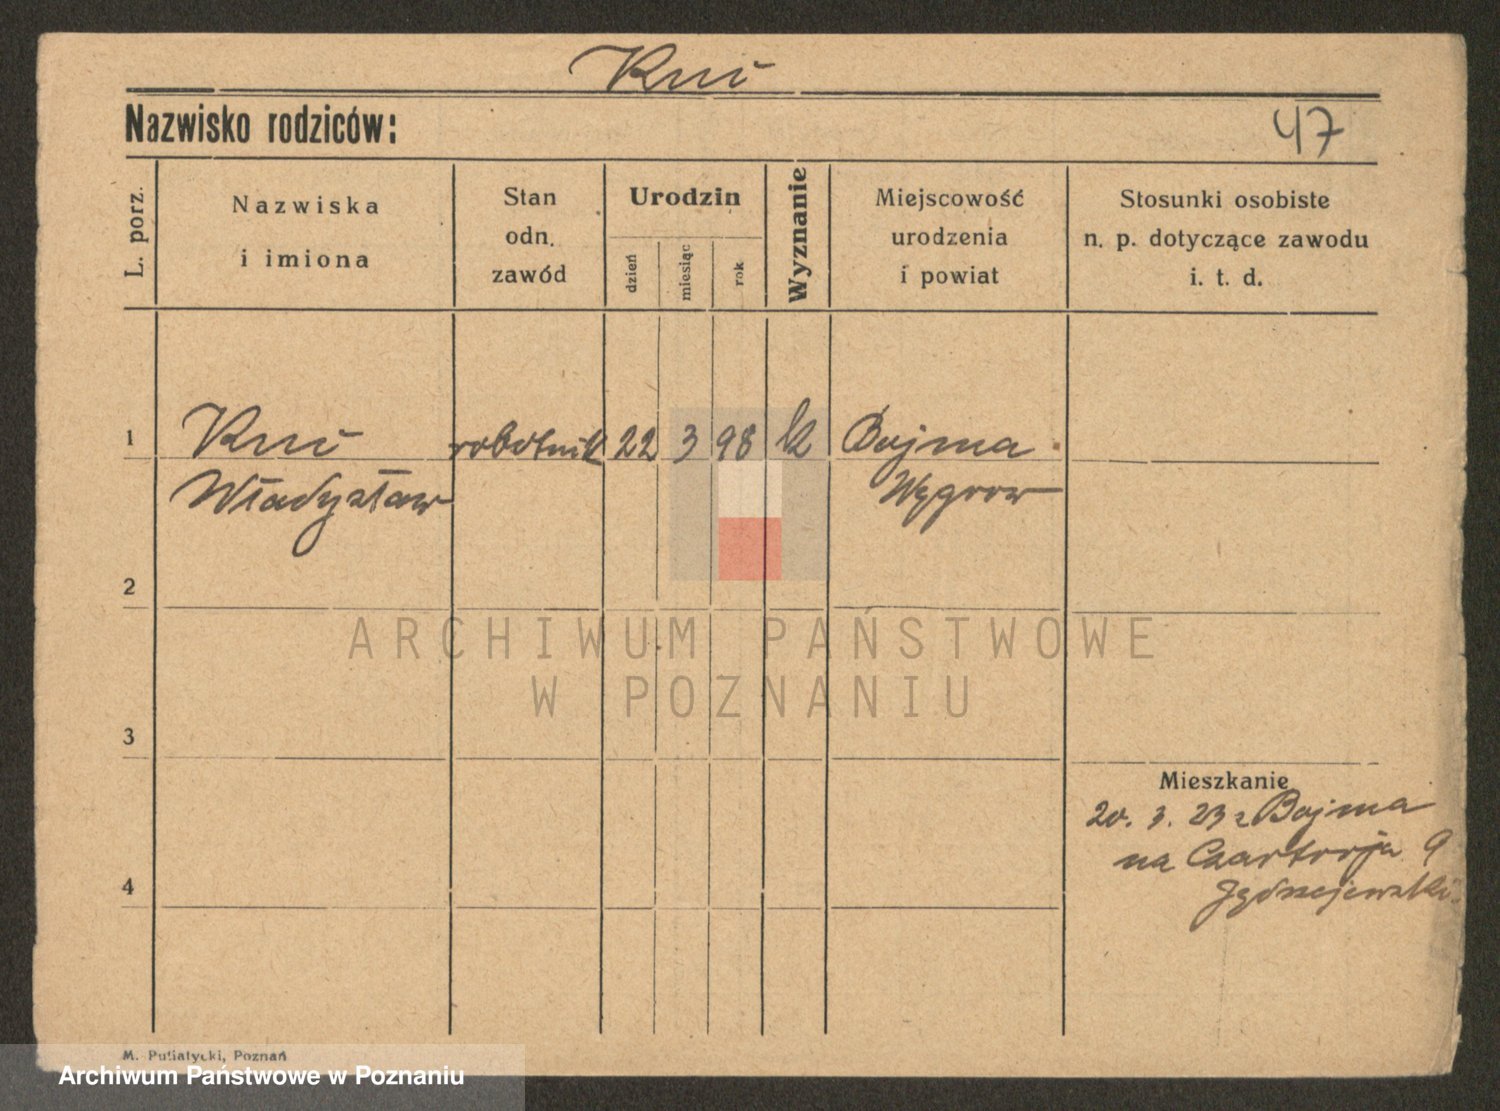 Kuć
Nazwisko rodziców:
47
L. porz.
Nazwiska
i imiona
Stan
odn.
zawód
Urodzin
dzień
miesiąc
rok
Wyznanie
Miejscowość
urodzenia
i powiat
Stosunki osobiste
n. p. dotyczące zawodu
i. t. d.
1
Kuć robotnik 22 3 98 k Bojma
Władysław Węgrow
2
ARCHIWUM PAŃSTWOWE
W POZNANIU
3
Mieszkanie
20. 3. 23 z Bojma
na Czartorja 9
4
M. Putiatycki, Poznań
Archiwum Państwowe w Poznaniu